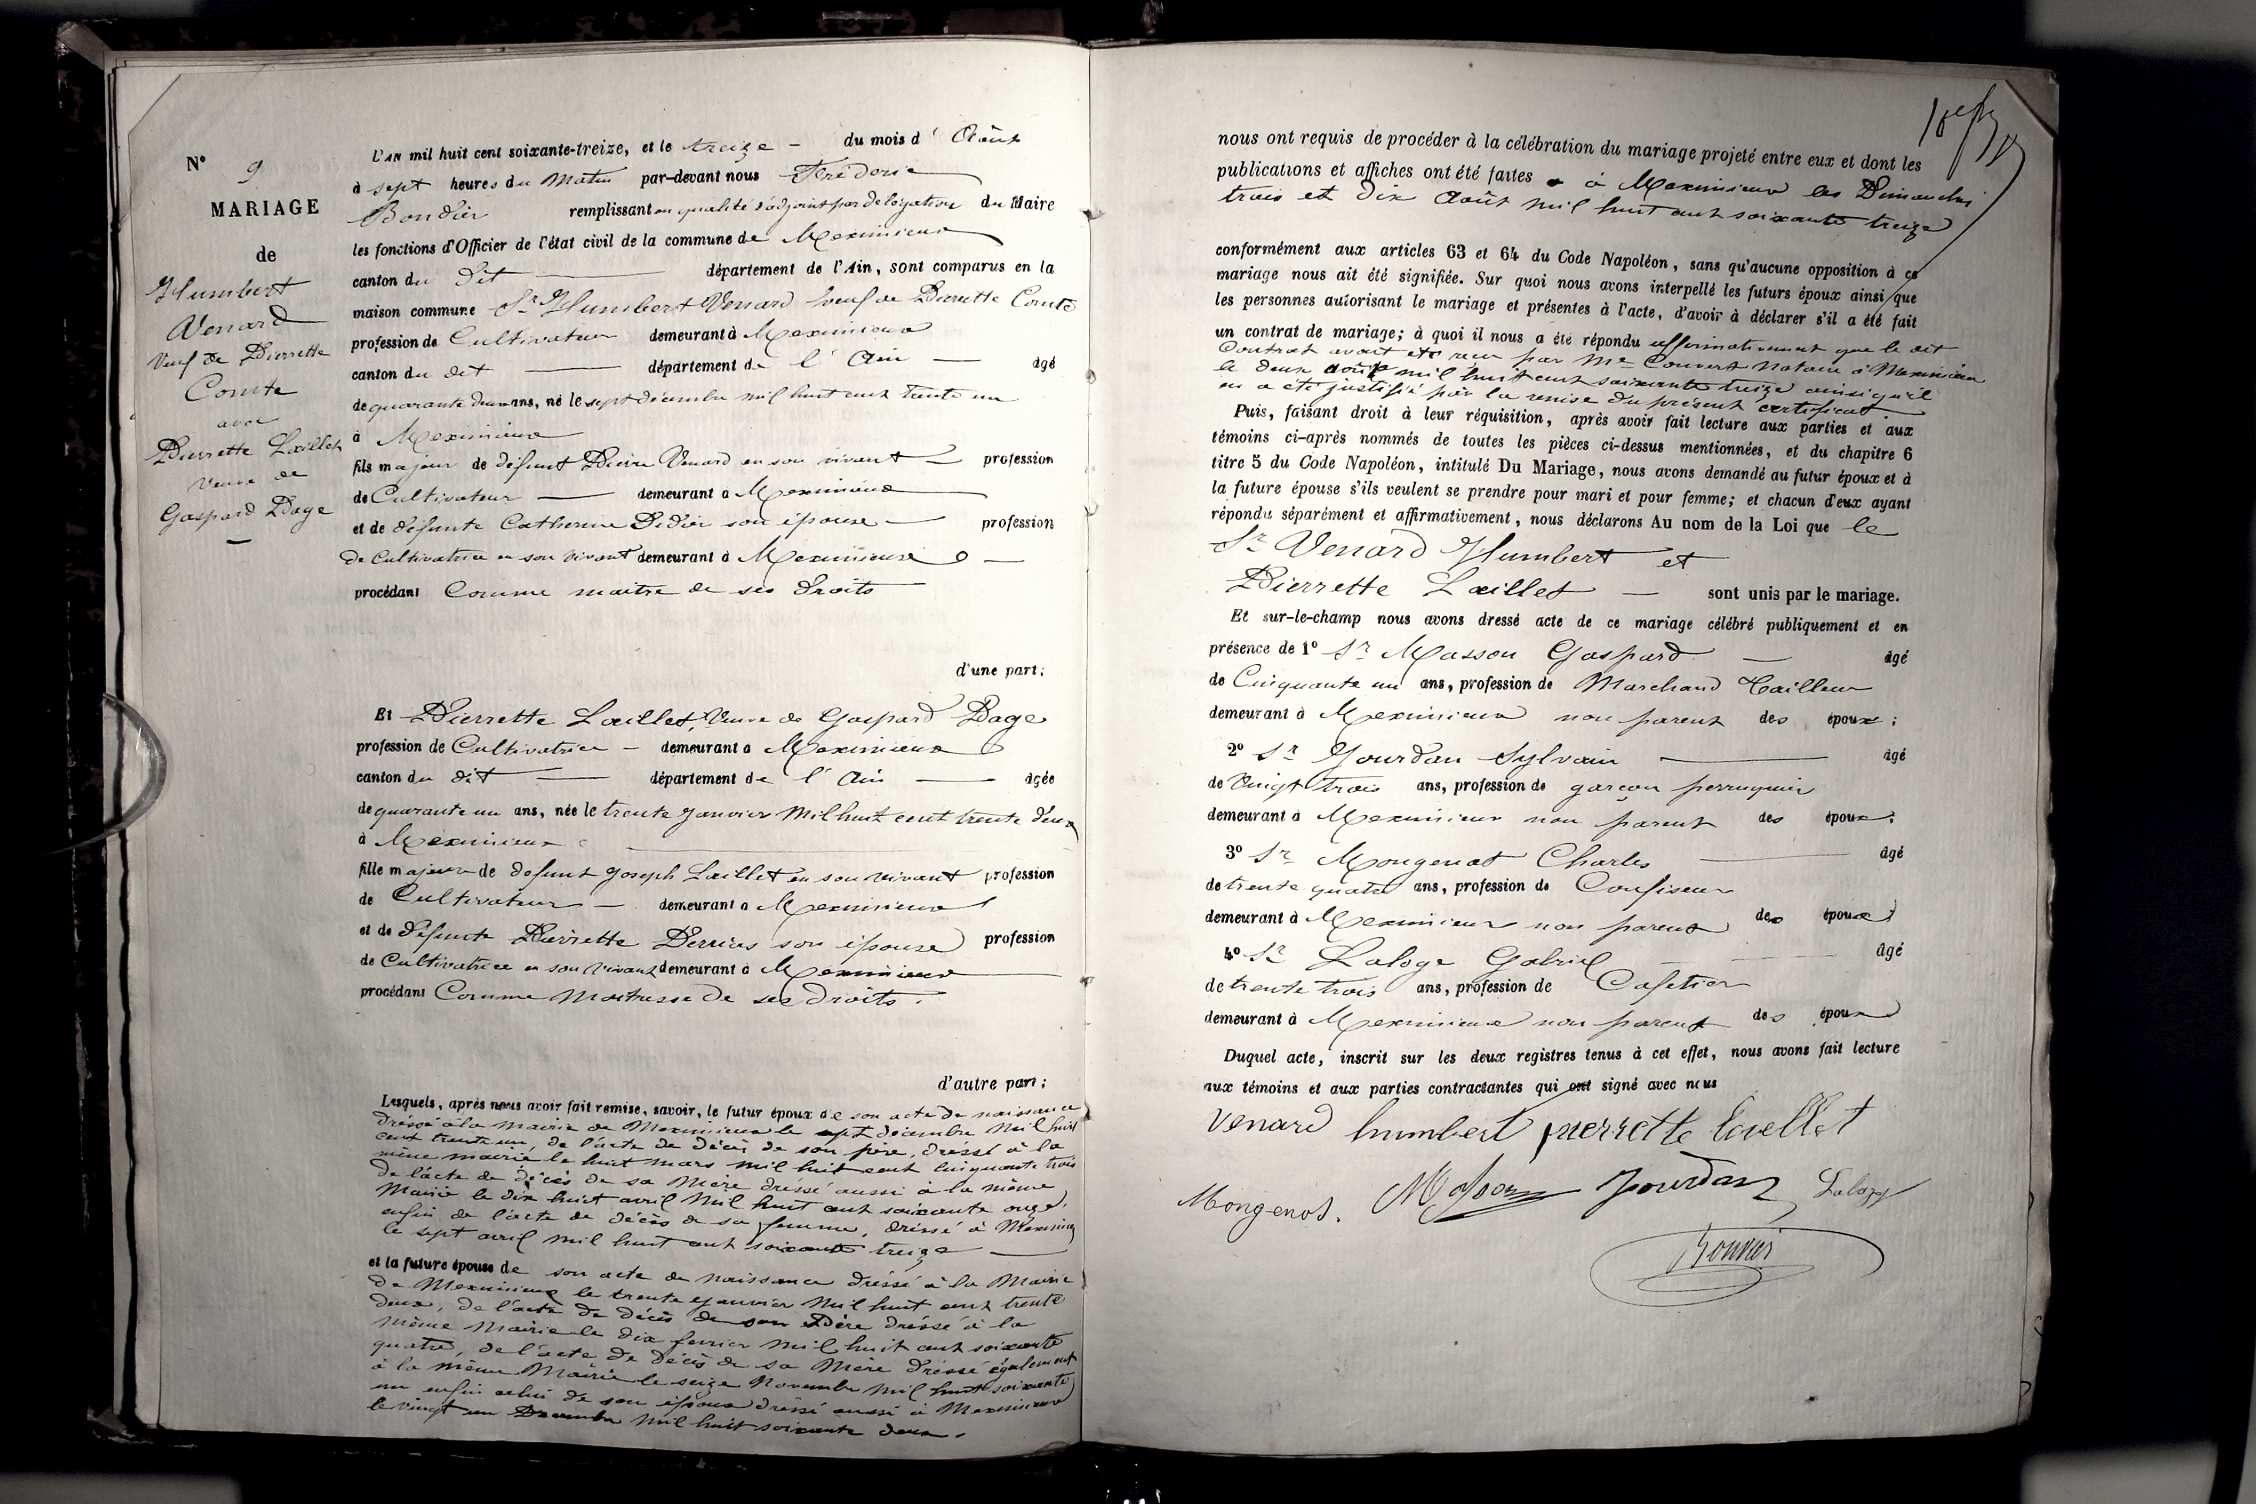 N° 9
MARIAGE
de
Humbert
Venard
Veuf de Pierrette
Comte
avec
Pierrette Laillet
veuve de
Gaspard Page
L'AN mil huit cent soixante-treize, et le treize - du mois d' Août
à sept heures du Matin par-devant nous Frédéric
remplissant en qualité d'adjoint par délégation du Maire
les fonctions d'Officier de l'état civil de la commune de Meximieux
canton du dit département de l'Ain, sont comparus en la
maison commune Sr Humbert Venard veuf de Pierrette Comte
profession de Cultivateur demeurant à Meximieux
canton du dit département de l'Ain âgé
de quarante deux ans, né le sept décembre mil huit cent trente un
à Meximieux
fils majeur de défunt Pierre Venard en son vivant profession
de Cultivateur demeurant à Meximieux
et de défunte Catherine Didier son épouse profession
de Cultivatrice en son vivant demeurant à Meximieux
procédant Comme maitre de ses droits
d'une part;
Et Pierrette Laillet, Veuve de Gaspard Page
profession de Cultivatrice - demeurant à Meximieux
canton du dit département de l'Ain âgée
de quarante un ans, née le trente Janvier Mil huit cent trente deux
à Meximieux
fille majeure de defunt Joseph Laillet en son vivant profession
de Cultivateur - demeurant à Meximieux
et de défunte Pierrette son épouse profession
de Cultivatrice en son vivant demeurant à Meximieux
procédant Comme Maitresse de ses droits.
d'autre part;
Lesquels, après nous avoir fait remise, savoir, le futur époux de son acte de naissance
dréssé à la mairie de Meximieux le sept décembre Mil huit
cent trente un, de l'acte de décès de son père, dréssé à la
même mairie le huit mars mil huit cent cinquante trois
de l'acte de décès de sa Mère dréssé aussi à la même
Mairie le dix huit avril Mil huit cent soixante onze,
enfin de l'acte de décès de sa femme, dréssé à Meximieux
le sept avril mil huit cent soixante treize
et la future épouse de son acte de naissance dréssé à la Mairie
de Meximieux le trente Janvier Mil huit cent trente
deux, de l'acte de décès de son Père dréssé à la
même Mairie le dix fevrier Mil huit cent soixante
quatre, de l'acte de décès de sa Mère dréssé également
à la même Mairie le seize Novembre Mil huit soixante
un enfin celui de son époux dréssé aussi à Meximieux
le vingt un Mil huit soixante deux.
nous ont requis de procéder à la célébration du mariage projeté entre eux et dont les
publications et affiches ont été faites à Meximieux les Dimanches
trois et dix Août mil huit cent soixante treize
conformément aux articles 63 et 64 du Code Napoléon, sans qu'aucune opposition à ce
mariage nous ait été signifiée. Sur quoi nous avons interpellé les futurs époux ainsi que
les personnes autorisant le mariage et présentes à l'acte, d'avoir à déclarer s'il a été fait
un contrat de mariage; à quoi il nous a été répondu affirmativement que le dit
Contrat avait été reçu par Me Couvert Notaire à Meximieux
le deux août mil huit cent soixante treize ainsi qu'il
en a été justifié par la remise du présent certificat
Puis, faisant droit à leur réquisition, après avoir fait lecture aux parties et aux
témoins ci-après nommés de toutes les pièces ci-dessus mentionnées, et du chapitre 6
titre 5 du Code Napoléon, intitulé Du Mariage, nous avons demandé au futur époux et à
la future épouse s'ils veulent se prendre pour mari et pour femme; et chacun d'eux ayant
répondu séparément et affirmativement, nous déclarons Au nom de la Loi que le
Sr Venard Humbert et
Pierrette Laillet sont unis par le mariage.
Et sur-le-champ nous avons dressé acte de ce mariage célébré publiquement et en
présence de 1° Sr Masson Gaspard âgé
de Cinquante un ans, profession de Marchand Tailleur
demeurant à Meximieux non parent des époux;
2° Sr Jourdan Sylvain âgé
de Vingt trois ans, profession de garçon perruquier
demeurant à Meximieux non parent des époux;
3° Sr Mongenot Charles âgé
de trente quatre ans, profession de Confiseur
demeurant à Meximieux non parent des époux;
4° Sr Laloge Gabriel âgé
de trente trois ans, profession de Cafetier
demeurant à Meximieux non parent des époux
Duquel acte, inscrit sur les deux registres tenus à cet effet, nous avons fait lecture
aux témoins et aux parties contractantes qui ont signé avec nous
Venard humbert pierrette Laellet
Mongenot. Masson Jourdan Laloge